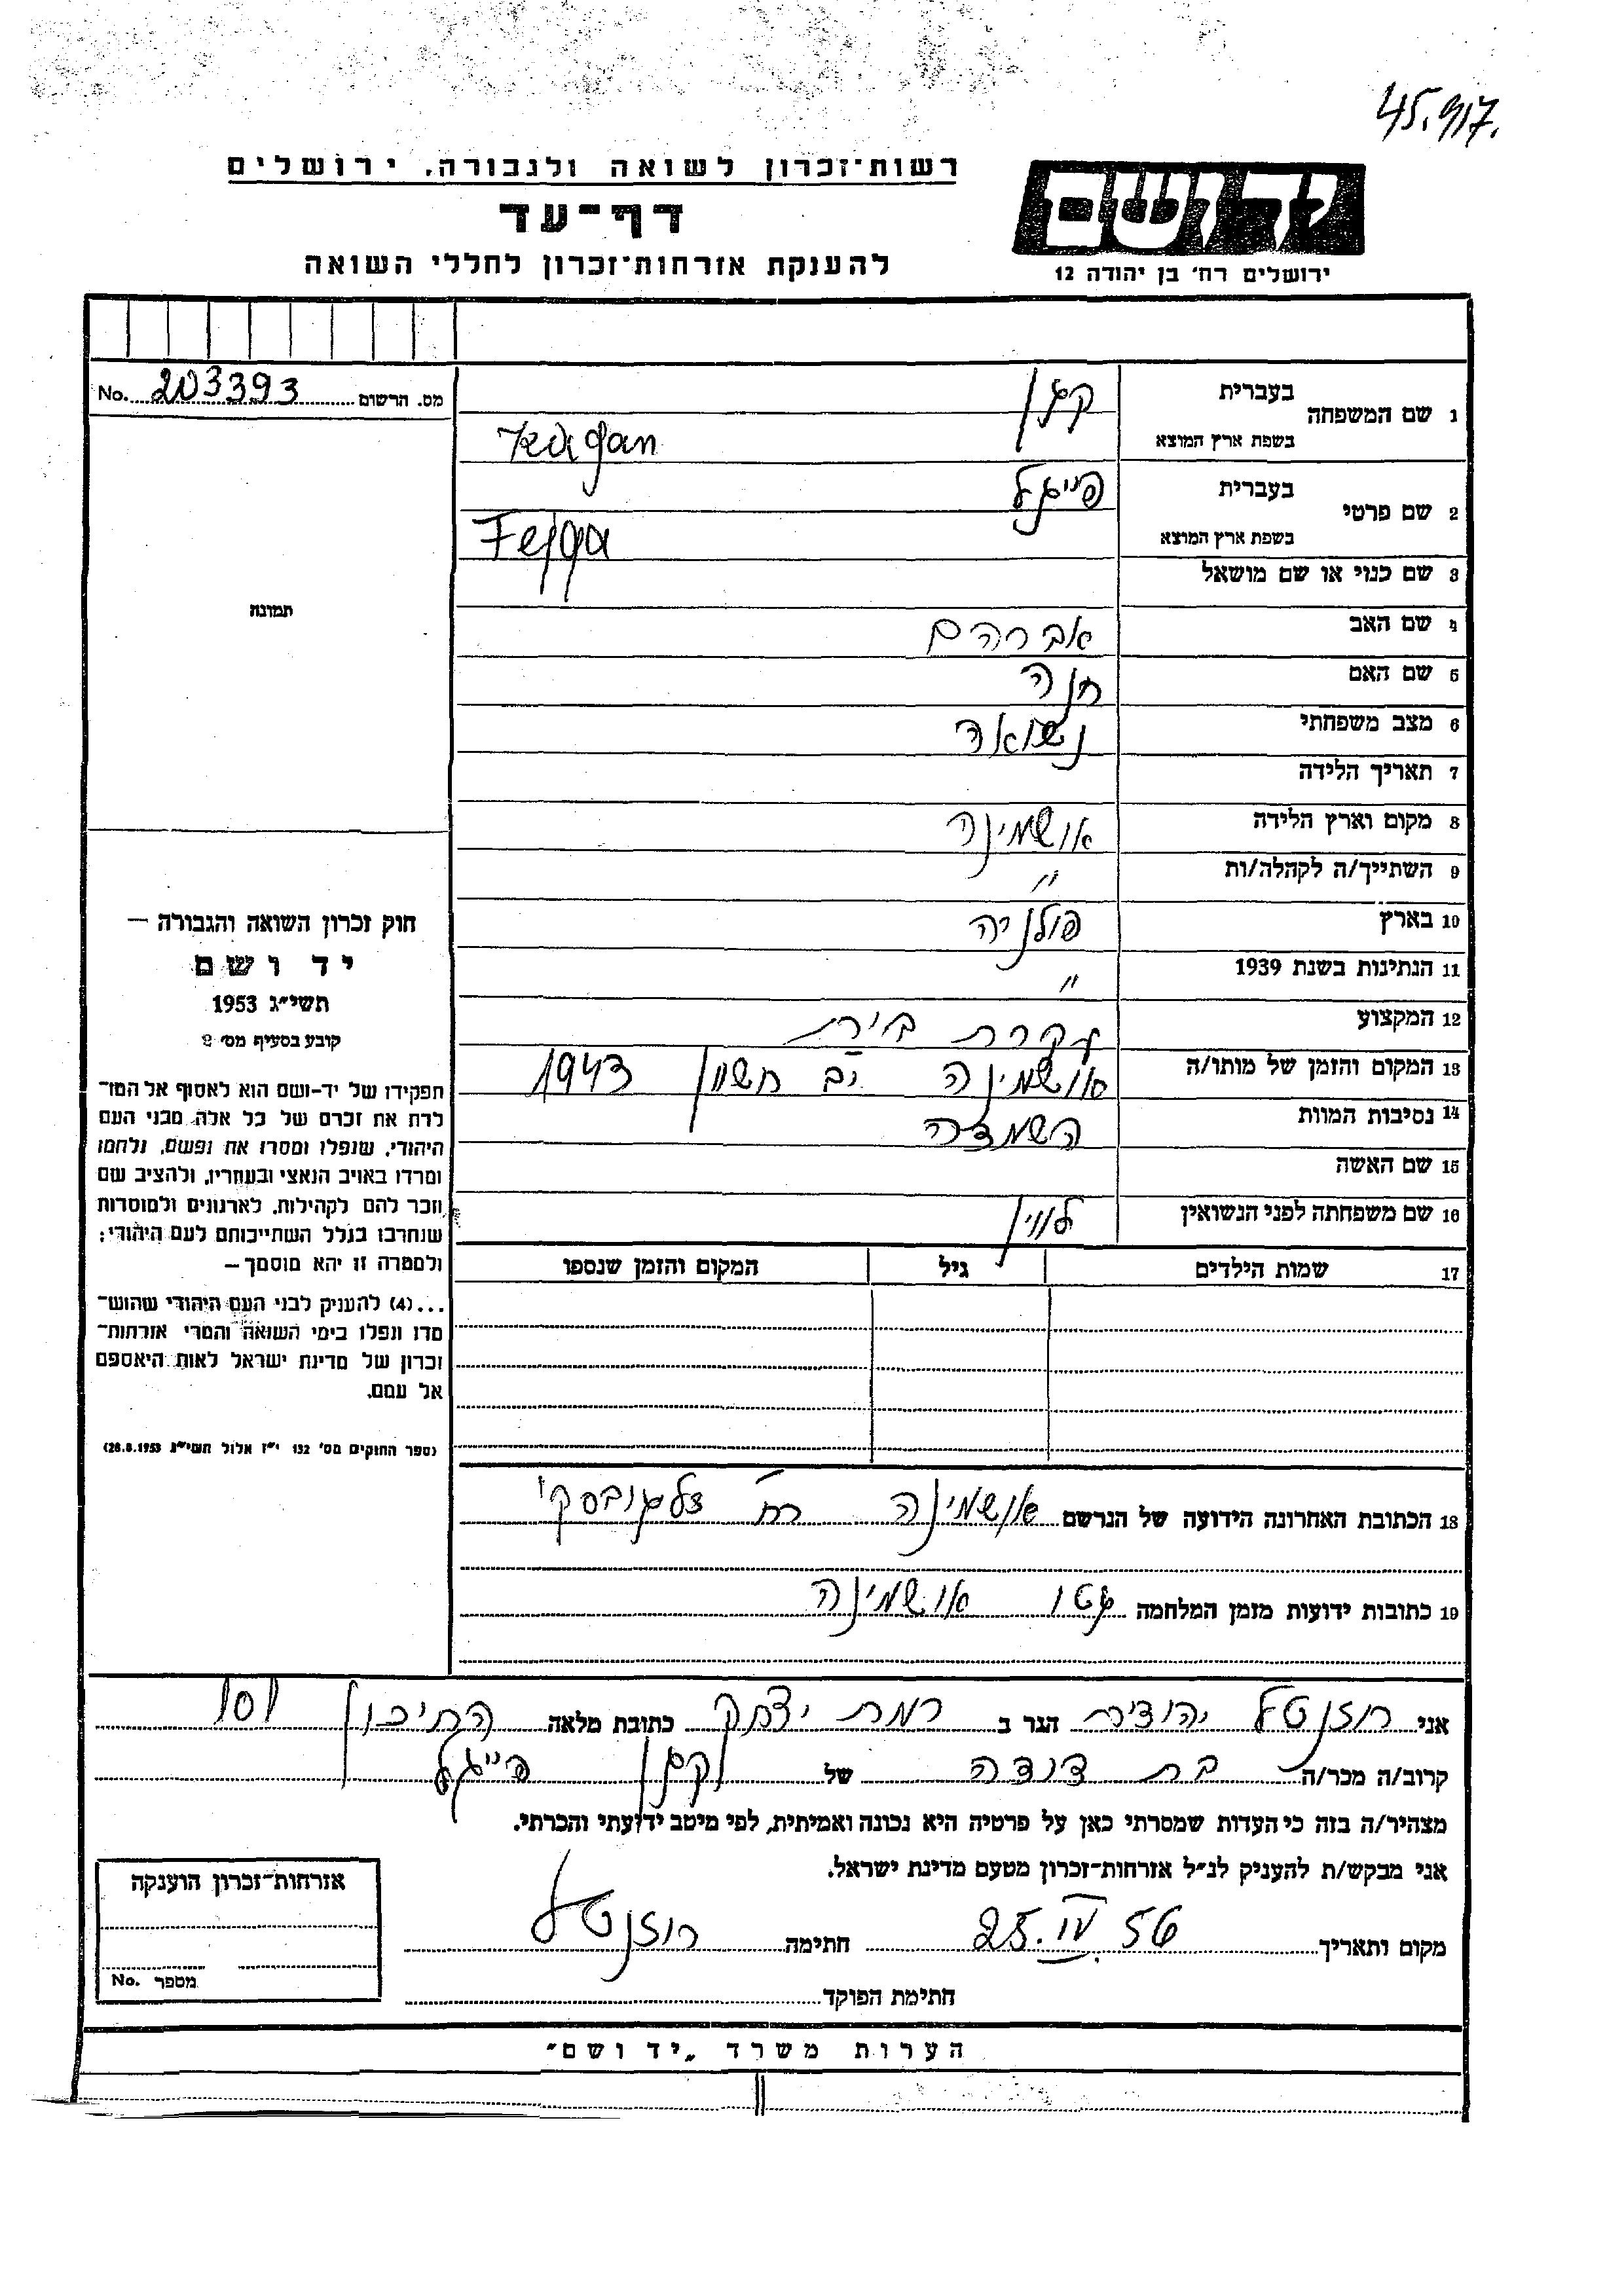 45.917.
רשות־זכרון לשואה ולגבורה, ירושלים
יד ושם
דף־עד
להענקת אזרחות־זכרון לחללי השואה
ירושלים רח' בן יהודה 12
מס. הרשום 203393 No.
1 שם המשפחה בעברית קגן
בשפת ארץ המוצא Kagan
2 שם פרטי בעברית פייגל
בשפת ארץ המוצא Fejga
3 שם כנוי או שם מושאל
תמונה
4 שם האב אברהם
5 שם האם חנה
6 מצב משפחתי נשואה
7 תאריך הלידה
8 מקום וארץ הלידה אושמינה
9 השתייך/ה לקהלה/ות "
10 בארץ פולניה
11 הנתינות בשנת 1939 "
12 המקצוע עקרת בית
13 המקום והזמן של מותו/ה אושמינה יב חשוון 1943
14 נסיבות המוות השמדה
15 שם האשה
16 שם משפחתה לפני הנשואין לווין
17 שמות הילדים גיל המקום והזמן שנספו
חוק זכרון השואה והגבורה —
יד ושם
תשי״ג 1953
קובע בסעיף מס׳ 2
תפקידו של יד-ושם הוא לאסוף אל המו־
לדת את זכרם של כל אלה מבני העם
היהודי, שנפלו ומסרו את נפשם, נלחמו
ומרדו באויב הנאצי ובעוזריו, ולהציב שם
וזכר להם לקהילות, לארגונים ולמוסדות
שנחרבו בגלל השתייכותם לעם היהודי;
ולמטרה זו יהא מוסמך —
...(4) להעניק לבני העם היהודי שהוש־
מדו ונפלו בימי השואה והמרי אזרחות־
זכרון של מדינת ישראל לאות היאספם
אל עמם.
(ספר החוקים מס׳ 132 י״ז אלול תשי״ג 28.8.1953)
18 הכתובת האחרונה הידועה של הנרשם אושמינה רח' זלגובסקי
19 כתובות ידועות מזמן המלחמה גטו אושמינה
אני רוזנטל יהודית הגר ב רמת יצחק כתובת מלאה התיכון 101
קרוב/ה מכר/ה בת דודה של קגן פייגל
מצהיר/ה בזה כי העדות שמסרתי כאן על פרטיה היא נכונה ואמיתית, לפי מיטב ידיעתי והכרתי.
אני מבקש/ת להעניק לנ״ל אזרחות־זכרון מטעם מדינת ישראל.
מקום ותאריך 25.IV.56 חתימה רוזנטל
חתימת הפוקד
אזרחות־זכרון הוענקה
מספר No.
הערות משרד „יד ושם״